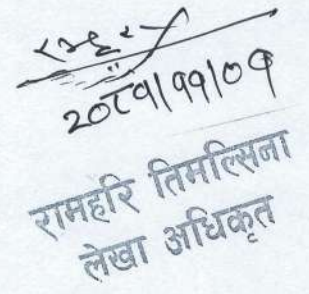 २०८१/११/०१
रामहरि तिमल्सिना
लेखा अधिकृत